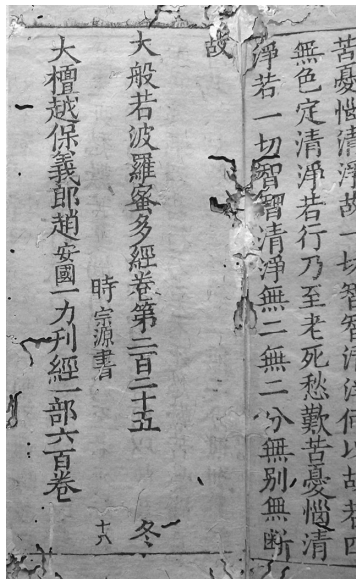 苦憂惱清淨故一切智智清淨何以故若四
無色定清淨若行乃至老死愁歎苦憂惱清
淨若一切智智清淨無二無二分無別無斷
故
大般若波羅蜜多經卷第二百二十五 冬
時宗源書 十八
大檀越保義郎趙安國一力刊經一部六百卷